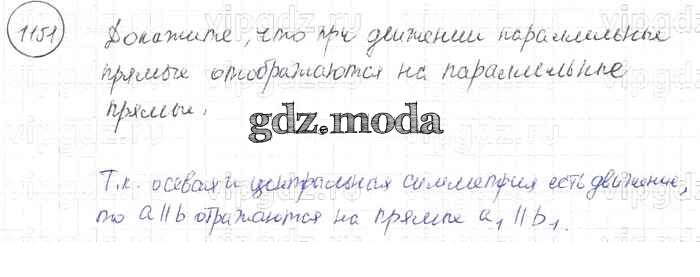 1151 Докажите, что при движении параллельные
прямые отображаются на параллельные
прямые.
gdz.moda
Т.к. осевая и центральная симметрия есть движение,
то a || b отражаются на прямые a₁ || b₁.